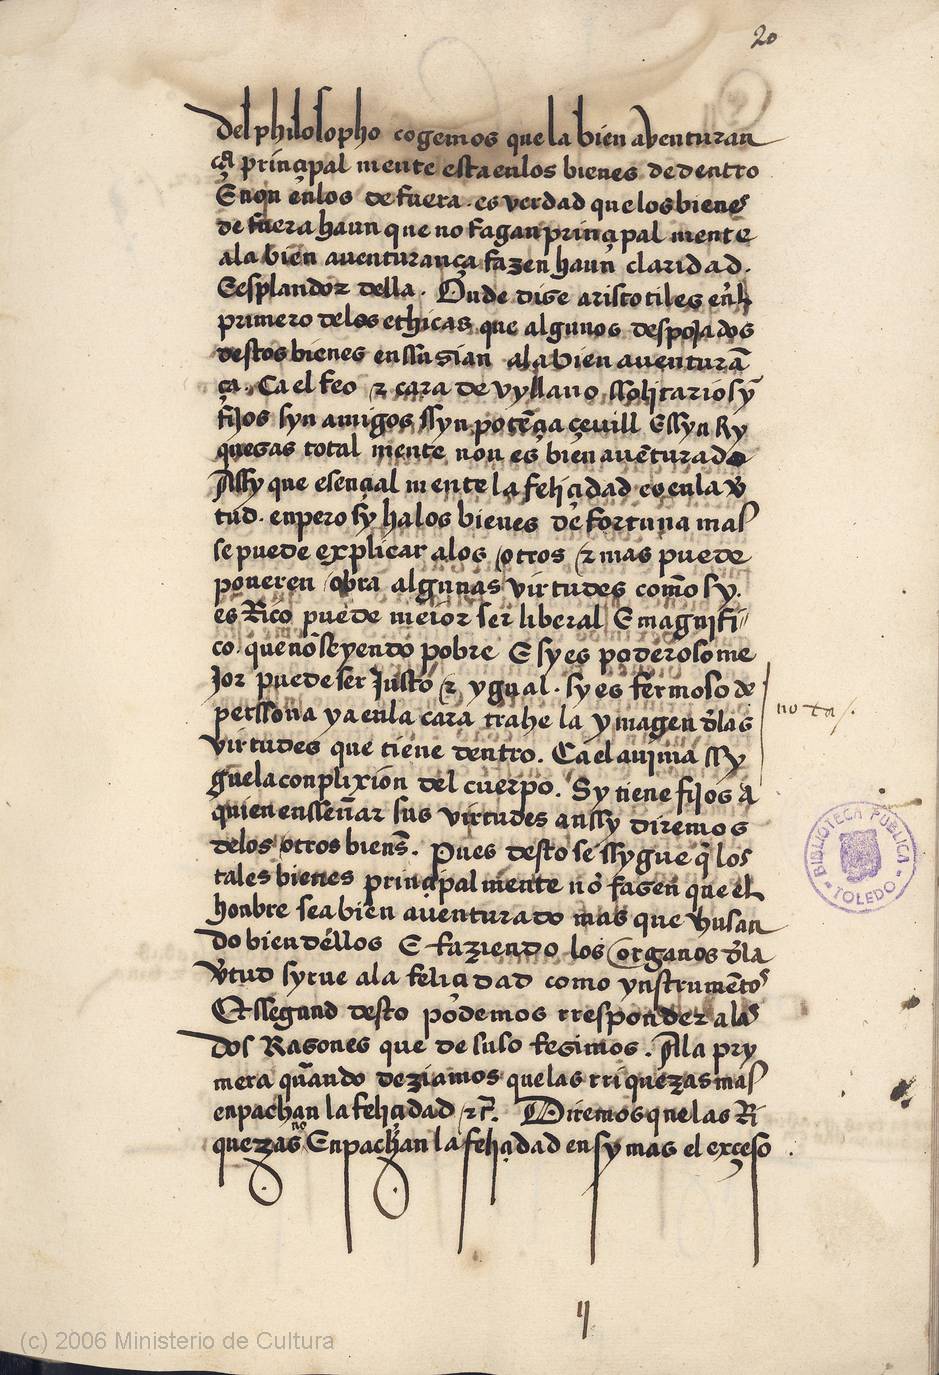 20
del philosopho cogemos que la bien aventuran
ça prinçipal mente esta enlos bienes de dentro
E non enlos de fuera. es verdad que los bienes
de fuera haun que no fagan prinçipal mente
ala bien auenturança fazen haun claridad.
E esplandor della. Onde dise aristotiles enl
primero delos ethicas que algunos despojados
destos bienes enssusian ala bien auenturā
ça. Ca el feo τ cara de vyllano ssolitario sỹ
fijos syn amigos ssyn potēçia çeuill E ssyn Ry
quesas total mente non es bien auēturado
Assy que esençial mente la feliçidad es enla v̄
tud. enpero sy ha los bienes de fortuna mas
se puede explicar alos otros τ mas puede
poner en obra algunas virtudes com̄o sy.
es Rico puede meior ser liberal E magnifi
co. que nō seyendo pobre E sy es poderoso me
Jor puede ser Justo τ ygual. sy es fermoso de
perssona ya enla cara trahe la ymagen d̄las
virtudes que tiene dentro. Ca el anima ssy
gue la conplixion del cuerpo. Sy tiene fijos a
quien ensseñar sus virtudes anssy diremos
delos otros biens̄. Pues desto se ssygue q̄ los
tales bienes prinçipal mente nō fasen que el
honbre sea bien auenturado mas que vsan
do bien dellos E faziendo los organos d̄la
v̄tud syrue ala feliçidad como ynstrumētos
Et ssegund desto podemos rresponder alas
dos Rasones que de suso fesimos. Ala pry
mera quando deziamos que las rriquezas mas
enpachan la feliçidad τc̄. Diremos que las Ri
quezas no Enpachan la feliçidad en sy mas el exçeso
nota
BIBLIOTECA PUBLICA
TOLEDO
(c) 2006 Ministerio de Cultura